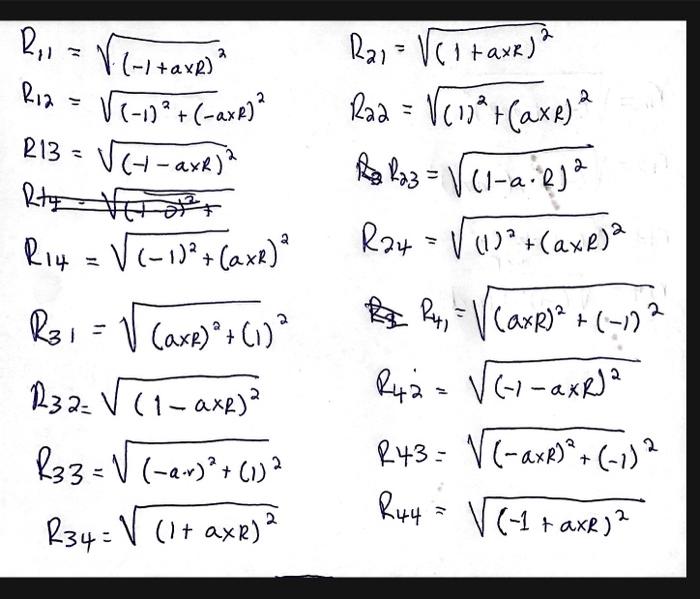 R11 = √(-1+axR)²
R12 = √(-1)² + (-axR)²
R13 = √(-1-axR)²
R14 = √(-1)² + (axR)²
R31 = √(axR)² + (1)²
R32 = √(1-axR)²
R33 = √(-a·r)² + (1)²
R34 = √(1+axR)²
R21 = √(1+axR)²
R22 = √(1)² + (axR)²
R23 = √(1-a·R)²
R24 = √(1)² + (axR)²
R41 = √(axR)² + (-1)²
R42 = √(-1-axR)²
R43 = √(-axR)² + (-1)²
R44 = √(-1+axR)²